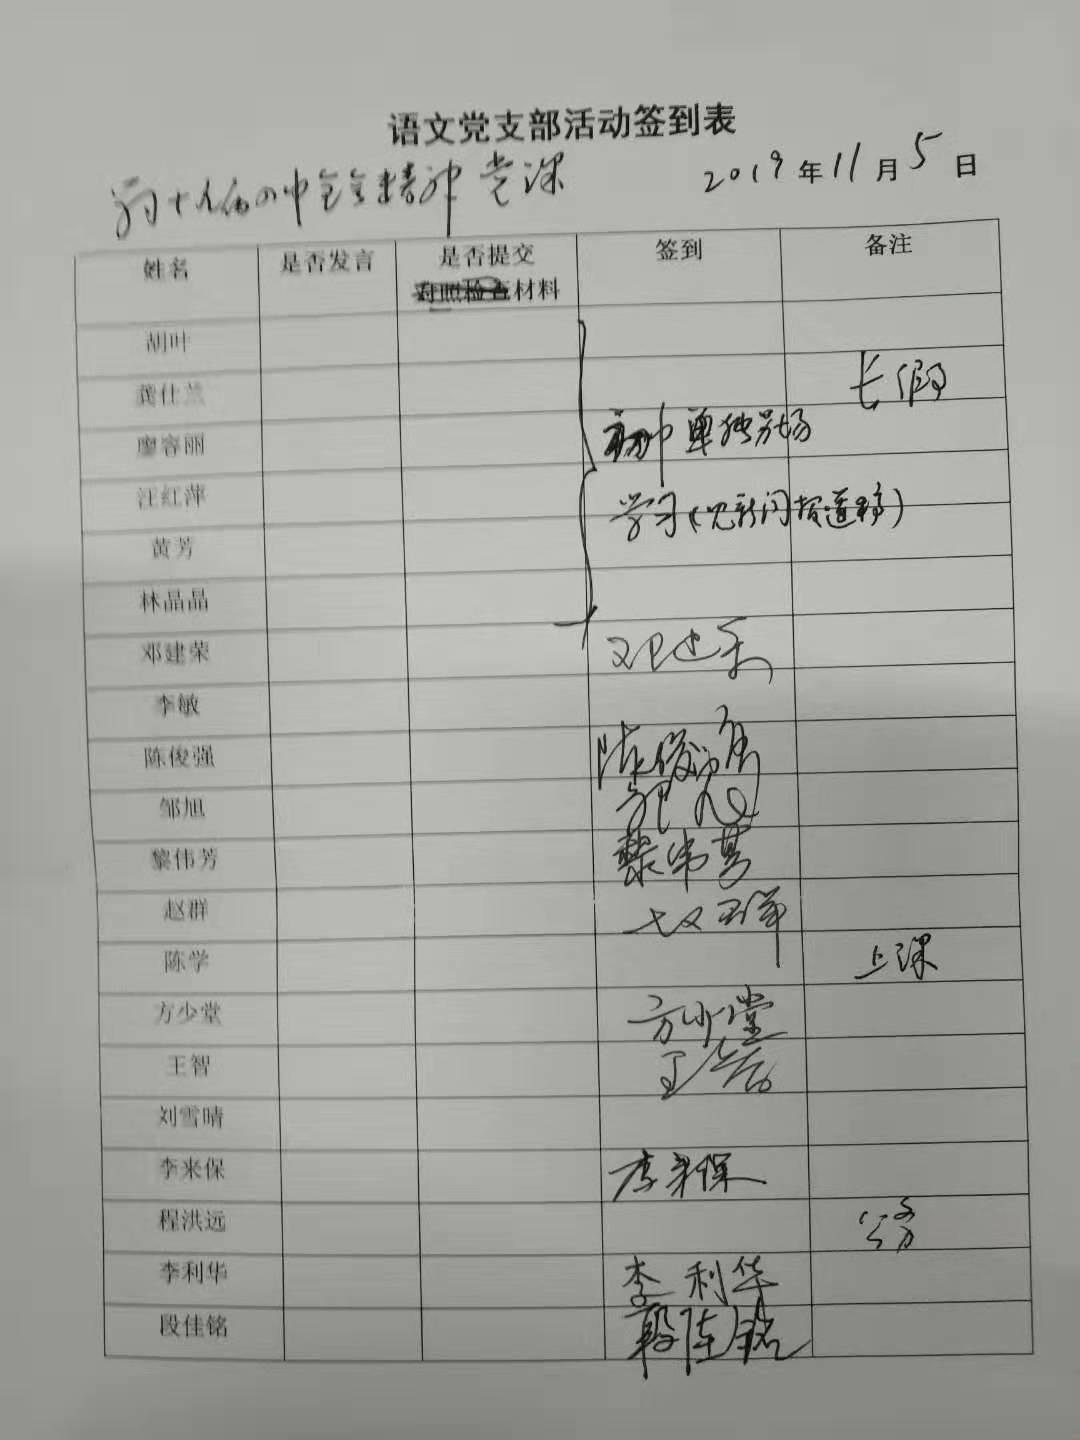 语文党支部活动签到表
十九届四中全会精神党课 2019年11月5日
姓名 是否发言 是否提交 签到 备注
对照检查材料
胡叶
龚仕兰 长假
廖容丽 初中单独另场
汪红萍 学习(见新闻报道稿)
黄芳
林晶晶
邓建荣 邓建荣
李敏
陈俊强 陈俊强
邹旭 邹旭
黎伟芳 黎伟芳
赵群 赵群
陈学 上课
方少堂 方少堂
王智 王智
刘雪晴
李来保 李来保
程洪远 公务
李利华 李利华
段佳铭 段佳铭